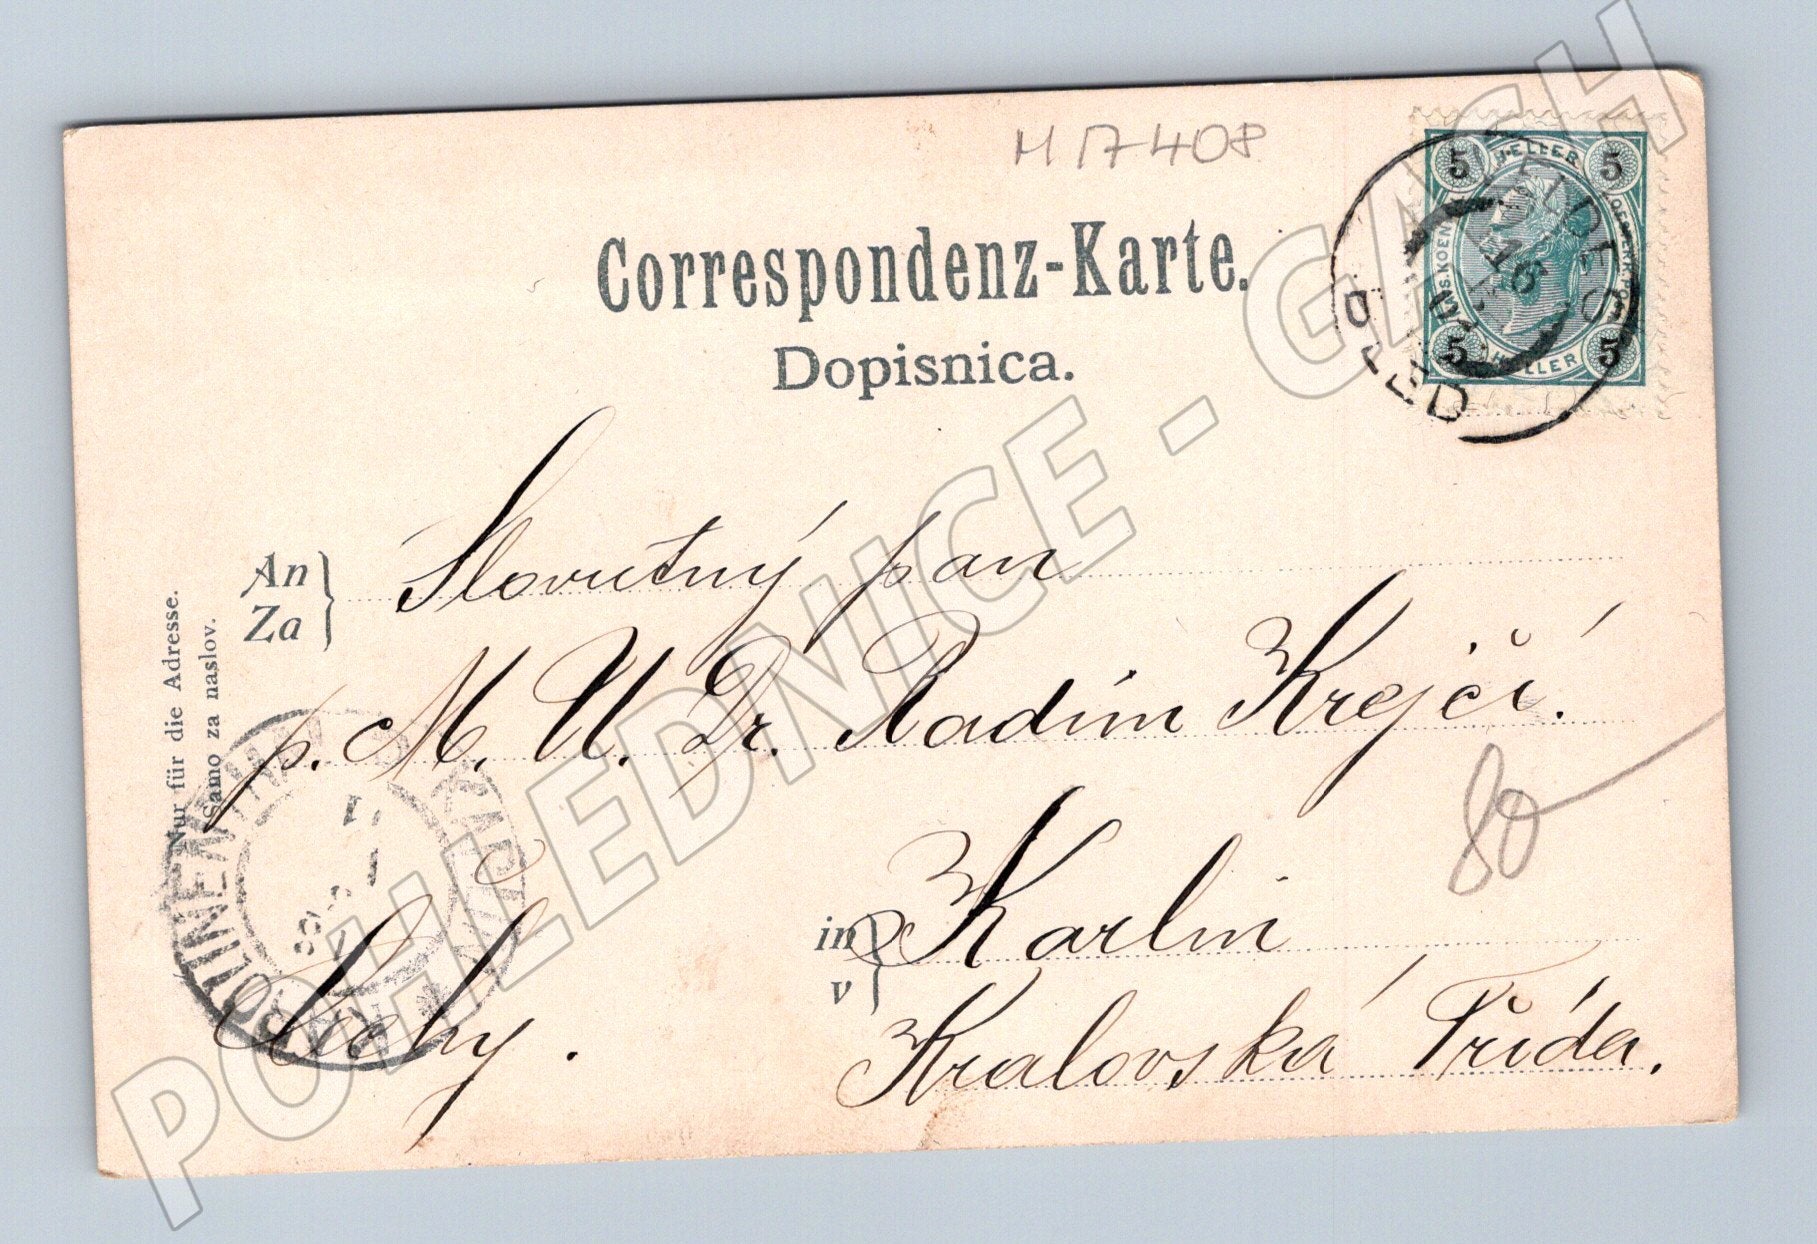 M 17408
Correspondenz-Karte.
Dopisnica.
5 HELLER 5
5 HELLER 5
VELDES
16
BLED
An
Za
Slovutný pan
p. M. U. Dr. Radim Krejčí.
in
v
Karlin
Kralovská Třída.
80
Čechy.
Nur für die Adresse.
Samo za naslov.
POHLEDNICE - GACH